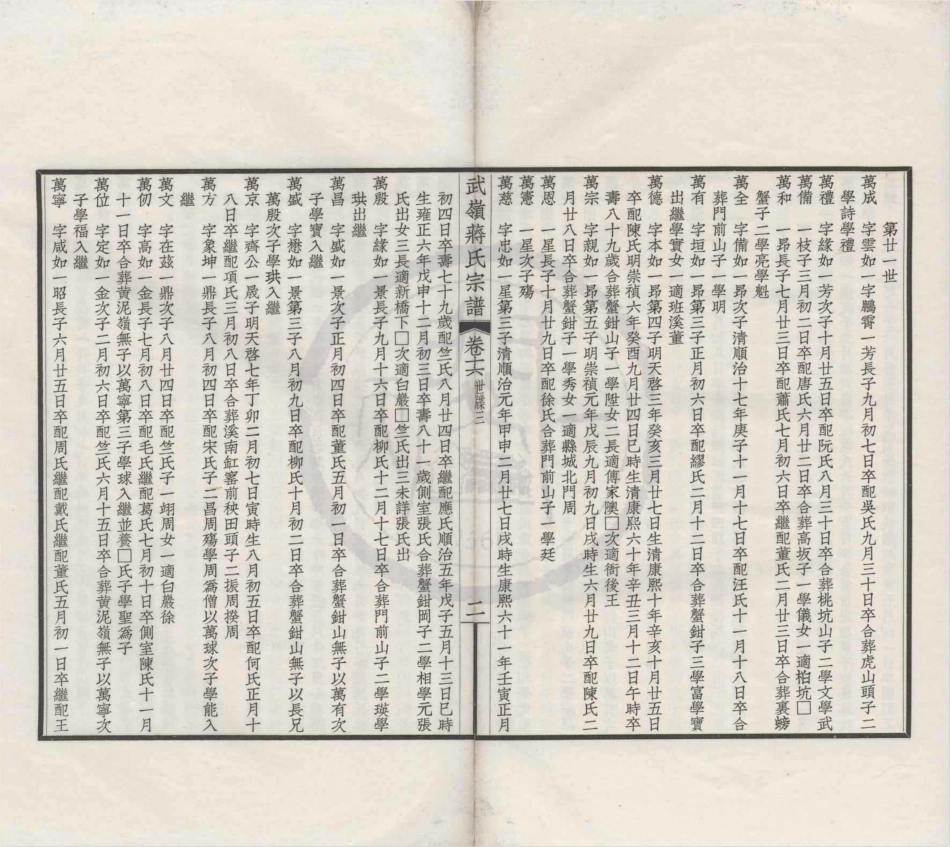 第廿一世
萬成　字雲如一字鵬霄一芳長子九月初七日卒配吳氏九月三十日卒合葬虎山頭子二
學詩學禮
萬禮　字緣如一芳次子十月廿五日卒配阮氏八月三十日卒合葬桃坑山子二學文學武
萬備　一枝子三月初二日卒配唐氏六月廿二日卒合葬高坂子一學儀女一適柏坑□
萬和　一昂長子七月廿三日卒配蕭氏七月初六日卒繼配董氏二月廿三日卒合葬裏螃
蟹子二學亮學魁
萬全　字備如一昂次子清順治十七年庚子十一月十七日卒配汪氏十一月十八日卒合
葬門前山子一學明
萬有　字垣如一昂第三子正月初六日卒配繆氏二月十二日卒合葬蟹鉗子三學富學寶
出繼學實女一適班溪董
萬德　字本如一昂第四子明天啓三年癸亥三月廿七日生清康熙十年辛亥十月廿五日
卒配陳氏明崇禎六年癸酉九月廿四日巳時生清康熙六十年辛丑三月十二日午時卒
壽八十九歲合葬蟹鉗山子一學陞女二長適傅家隩□次適衕後王
萬宗　字親如一昂第五子明崇禎元年戊辰九月初九日戌時生六月廿九日卒配陳氏二
月廿八日卒合葬蟹鉗子一學秀女一適縣城北門周
萬恩　一星長子十月廿九日卒配徐氏合葬門前山子一學廷
萬憲　一星次子殤
萬慈　字忠如一星第三子清順治元年甲申二月廿七日戌時生康熙六十一年壬寅正月
武嶺蔣氏宗譜　卷十六　世牒三　二
初四日卒壽七十九歲配竺氏八月廿四日卒繼配應氏順治五年戊子五月十三日巳時
生雍正六年戊申十二月初三日卒壽八十一歲側室張氏合葬蟹鉗岡子二學相學元張
氏出女三長適新橋下□次適白巖□竺氏出三未詳張氏出
萬殷　字緣如一景長子九月十六日卒配柳氏十二月十七日卒合葬門前山子二學瑛學
珙出繼
萬昌　字盛如一景次子正月初四日卒配董氏五月初一日卒合葬蟹鉗山無子以萬有次
子學寶入繼
萬盛　字懋如一景第三子八月初九日卒配柳氏十月初二日卒合葬蟹鉗山無子以長兄
萬殷次子學珙入繼
萬京　字齊公一晟子明天啓七年丁卯二月初七日寅時生八月初五日卒配何氏正月十
八日卒繼配項氏三月初八日卒合葬溪南缸窰前秧田頭子二振周揆周
萬方　字象坤一鼎長子八月初四日卒配宋氏子二昌周殤學周爲僧以萬球次子學能入
繼
萬文　字在茲一鼎次子八月廿四日卒配竺氏子一翊周女一適白巖徐
萬仞　字高如一金長子七月初八日卒配毛氏繼配葛氏七月初十日卒側室陳氏十一月
十一日卒合葬黄泥嶺無子以萬寧第三子學球入繼並養□氏子學聖爲子
萬位　字定如一金次子二月初六日卒配竺氏六月十五日卒合葬黄泥嶺無子以萬寧次
子學福入繼
萬寧　字咸如一昭長子六月廿五日卒配周氏繼配戴氏繼配董氏五月初一日卒繼配王